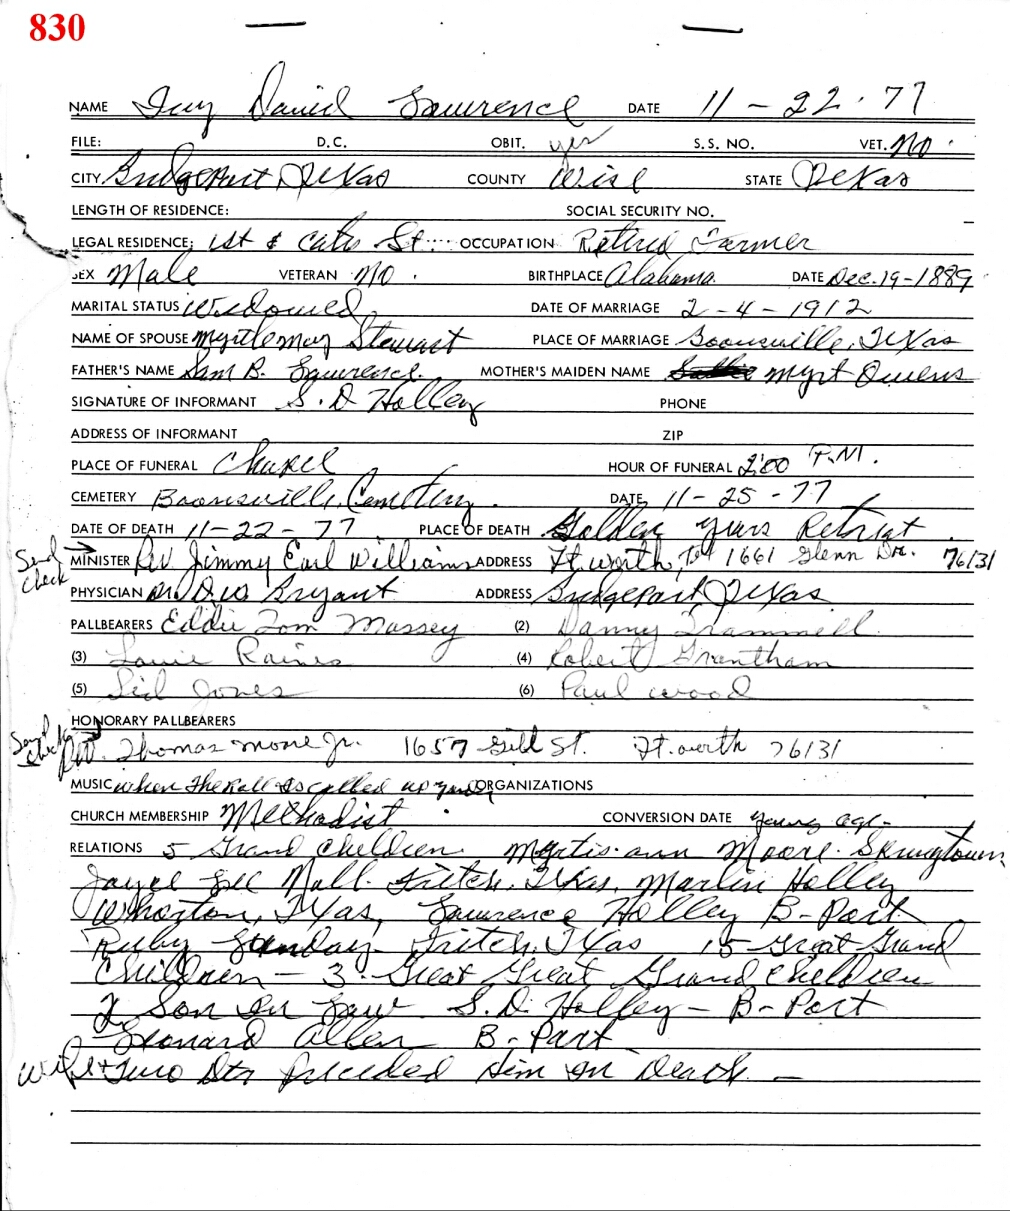 830
NAME Guy David Lawrence DATE 11-22-77
FILE: D.C. OBIT. yes S.S. NO. VET. No.
CITY Bridgeport, Texas COUNTY Wise STATE Texas
LENGTH OF RESIDENCE: SOCIAL SECURITY NO.
LEGAL RESIDENCE: 1st & Cates St. OCCUPATION Retired Farmer
SEX Male VETERAN No. BIRTHPLACE Alabama. DATE Dec. 19-1889
MARITAL STATUS Widowed DATE OF MARRIAGE 2-4-1912
NAME OF SPOUSE Myrtle May Stewart PLACE OF MARRIAGE Boonsville, Texas
FATHER'S NAME Sam B. Lawrence. MOTHER'S MAIDEN NAME Myrt Owens
SIGNATURE OF INFORMANT S. D Holley PHONE
ADDRESS OF INFORMANT ZIP
PLACE OF FUNERAL Chapel HOUR OF FUNERAL 2:00 P.M.
CEMETERY Boonsville, Cemetery. DATE 11-25-77
DATE OF DEATH 11-22-77 PLACE OF DEATH Golden years Retreat
Send check MINISTER Rev Jimmy Earl Williams ADDRESS Ft. worth, 1661 Glenn Dr. 76131
PHYSICIAN Bryant ADDRESS Bridgeport, Texas
PALLBEARERS Eddie Tom Massey (2) Danny Trammell
(3) Raines (4) Robert Grantham
(5) Jones (6) Paul wood
HONORARY PALLBEARERS
Send check Rev. Thomas Moore Jr. 1657 Gill St. Ft. worth 76131
MUSIC when The Roll is called up yonder ORGANIZATIONS
CHURCH MEMBERSHIP Methodist CONVERSION DATE young age-
RELATIONS 5 Grand children. Myrtis ann Moore. Springtown,
Joyce Lee Nall. Fritch, Texas, Marlin Holley
Whorton, Texas, Lawrence Holley B-Port
Ruby Sunday- Fritch, Texas 15 Great Grand
Children - 3 Great Great Grand children
2 Son in Law S. D. Holley - B-Port
Leonard Allen B-Port
Wife & Two Dtr preceeded Him in Death. -